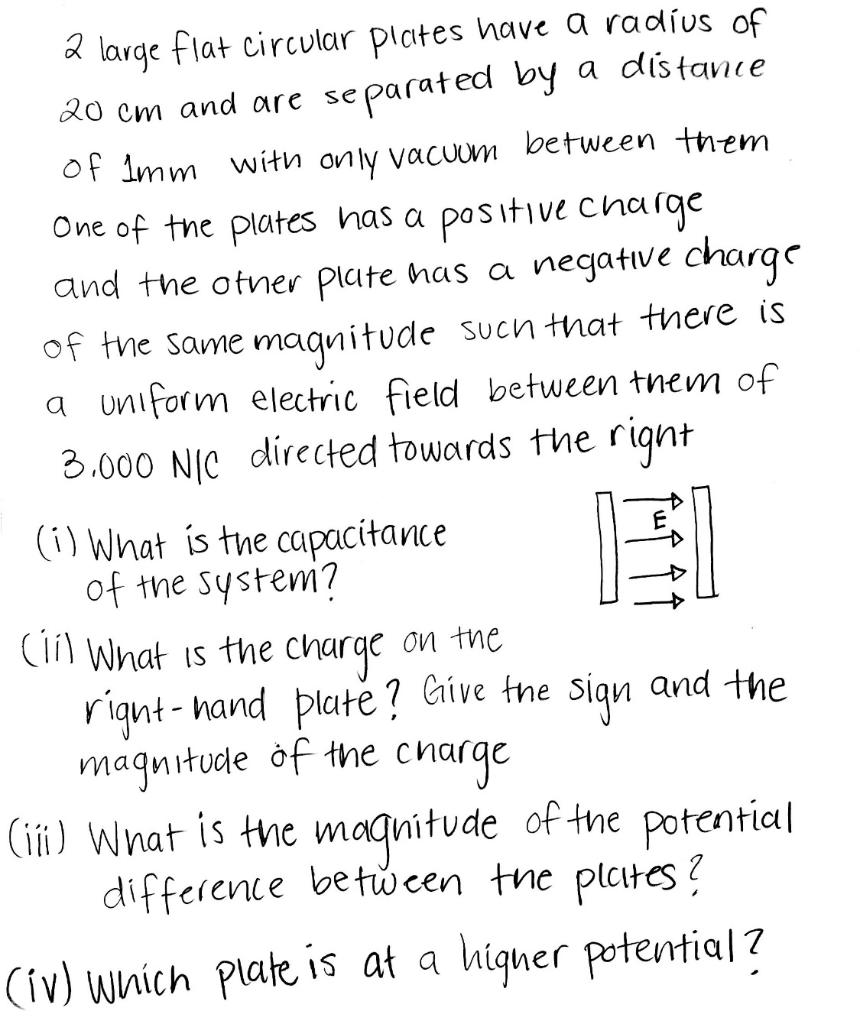 2 large flat circular plates have a radius of
20 cm and are separated by a distance
of 1mm with only vacuum between them
One of the plates has a positive charge
and the other plate has a negative charge
of the same magnitude such that there is
a uniform electric field between them of
3.000 N/C directed towards the right
(i) What is the capacitance
of the system?
E
(ii) What is the charge on the
right-hand plate? Give the sign and the
magnitude of the charge
(iii) What is the magnitude of the potential
difference between the plates?
(iv) Which plate is at a higher potential?